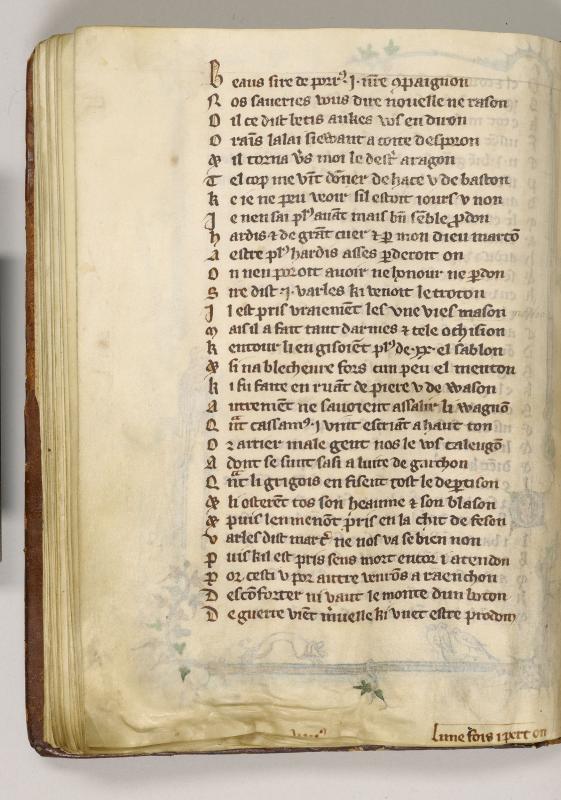 B eaus sire de porrꝰ ·I· nr̄e ꝯpaignon
N os saueries wus dire nouelle ne rason
D il ce dist betis aukes vꝰs en diron
O rains lalai siewant a coite desporon
⁊ il torna v̄s moi le destʳ aragon
T el cop me vīt dōner de hace v de baston
K e ie ne peu veoir sil estoit iours v non
J e nen sai plꝰ auāt mais bn̄ sēble ꝓdon
h ardis ⁊ de grāt cuer ⁊ ꝑ mon dieu martō
A estre plꝰ hardis asses ꝑderoit on
O n nen poroit auoir ne honour ne ꝑdon
S ire dist ·I· varles ki venoit le troton
J l est pris vraiemēt les vne vies mason
M ais il a fait tant darmes ⁊ tele ochision
K entour li en gisoiēt plꝰ de ·xx· el sablon
⁊ si na blecheure fors cun peu el menton
K i fu faite en ruāt de piere v de wason
A utrement ne sauoient assalir li wagnō
Q nt̄ cassamꝰ ·I· vint escriāt a haut ton
O r arrier male gent nos le vꝰs calengō
A dont se sunt saisi a luite de garchon
Q nt̄ li grigois en fisent tost le deꝑtison
⁊ li osterēt tos son heaume ⁊ son blason
⁊ puis lenmenōt pris en la chit de feson
V arles dist martʳ ne nos va se bien non
P uis kil est pris sens mort encor i atendon
P or cesti v por autre venrōs a raenchon
D escōforter ni vaut le monte dun boton
D e guerre viēt mʳuelle ki vuet estre prodom
lune fois i pert on